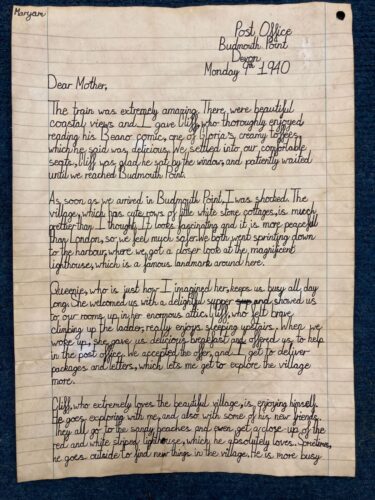 Maryam
Post Office
Budmouth Point
Devon
Monday 9th 1940
Dear Mother,
The train was extremely amazing. There were beautiful
coastal views and I gave Cliff, who thoroughly enjoyed
reading his Beano comic, one of Gloria's creamy toffees,
which he said was delicious. We settled into our comfortable
seats. Cliff was glad he sat by the window, and patiently waited
until we reached Budmouth Point.
As soon as we arrived in Budmouth Point, I was shocked. The
village, which has cute rows of little white stone cottages, is much
prettier than I thought. It looks fascinating and it is more peaceful
than London, so we feel much safer. We both went sprinting down
to the harbour, where we got a closer look at the magnificent
lighthouse, which is a famous landmark around here.
Queenie, who is just how I imagined her, keeps us busy all day
long. She welcomed us with a delightful supper and showed us
to our rooms up in her enormous attic. Cliff, who felt brave
climbing up the ladder, really enjoys sleeping upstairs. When we
woke up, she gave us delicious breakfast and offered us to help
in the post office. We accepted the offer, and I get to deliver
packages and letters, which lets me get to explore the village
more.
Cliff, who extremely loves the beautiful village, is enjoying himself.
He goes exploring with me, and also with some of his new friends.
They all go to the sandy beaches and even get a close up of the
red and white striped lighthouse, which he absolutely loves. Sometimes,
he goes outside to find new things in the village. He is more busy